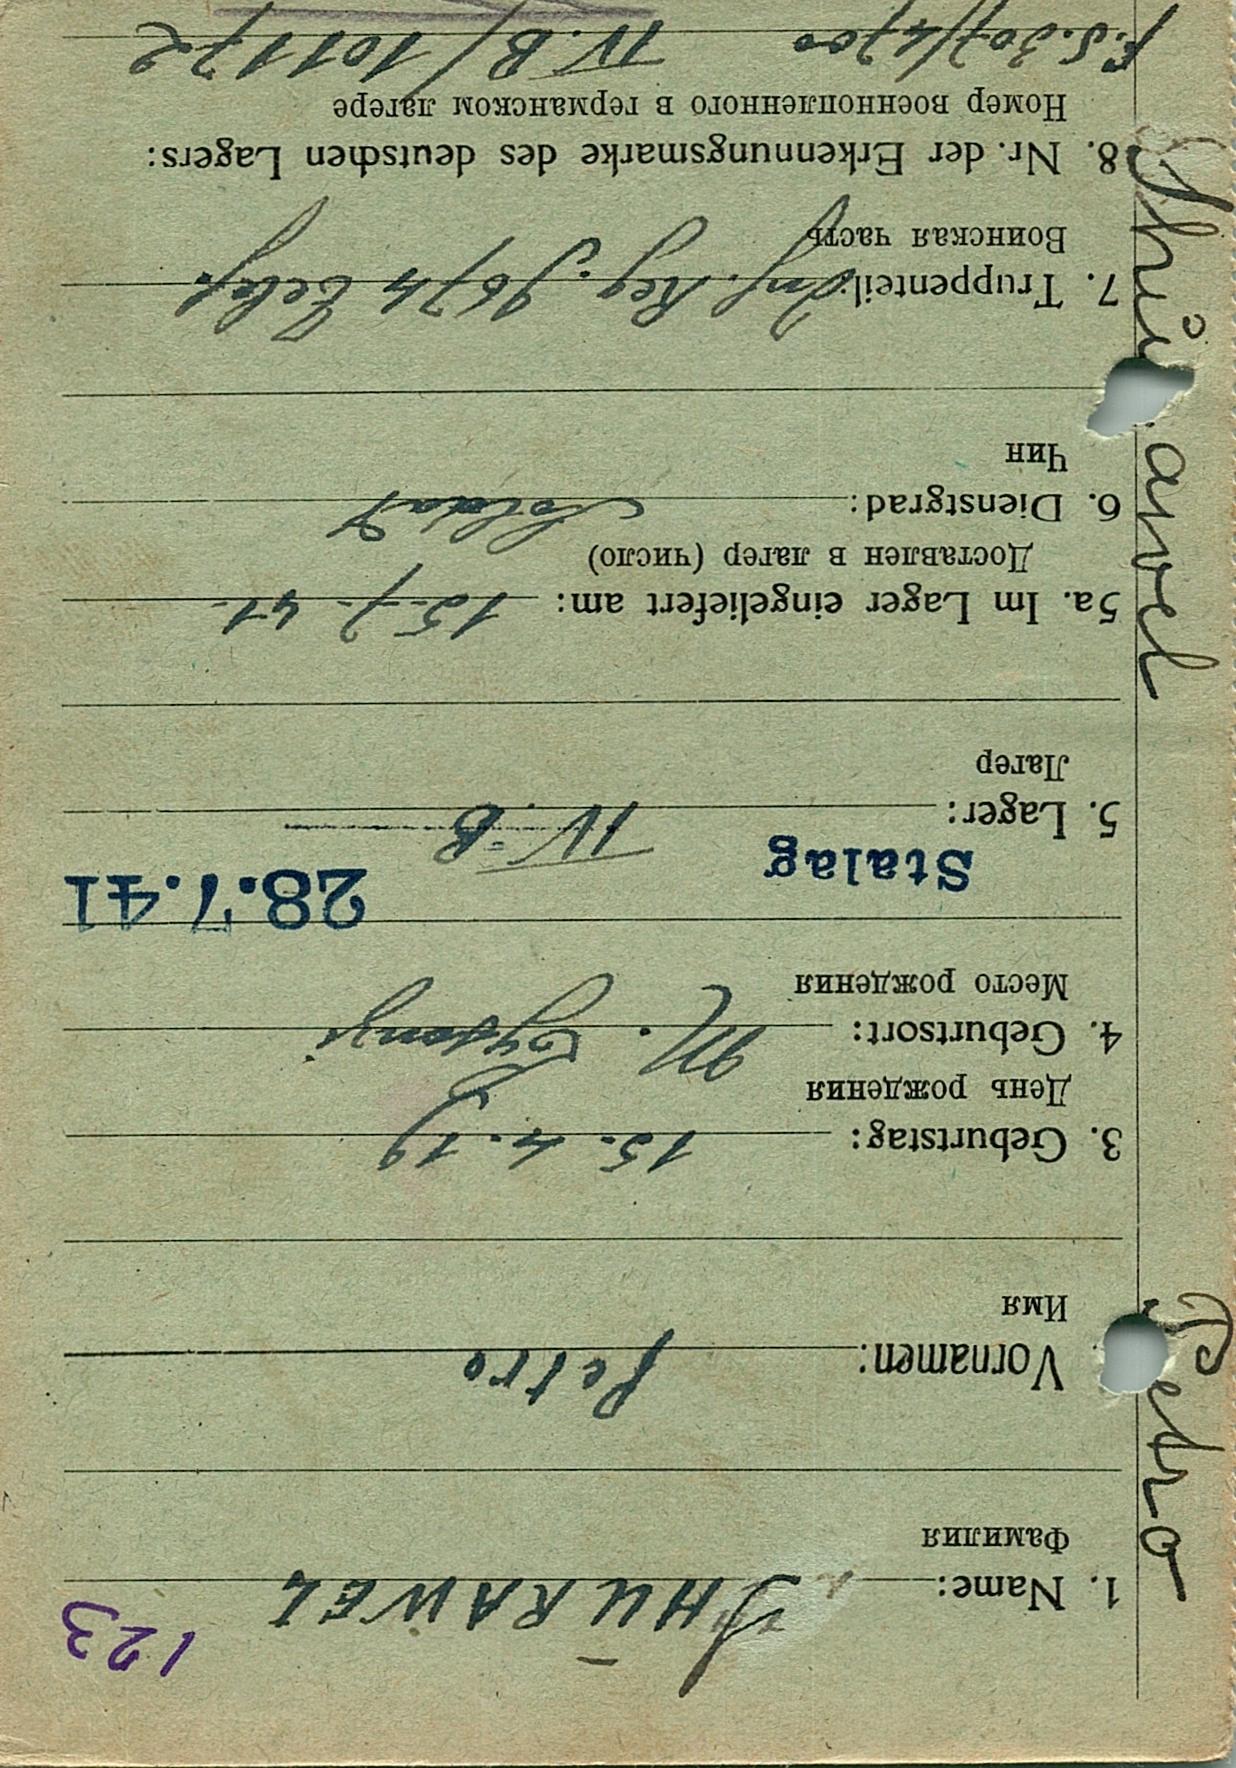 123
1. Name: SHURAWEL
Фамилия
Vornamen: Petro
Имя
3. Geburtstag: 15.4.19
День рождения
4. Geburtsort: M.
Место рождения
28.7.41
Stalag IV-B
5. Lager:
Лагерь
5a. Im Lager eingeliefert am: 15.7.41.
Доставлен в лагерь (число)
6. Dienstgrad: Soldat
Чин
7. Truppenteil: Inf. Reg.
Воинская часть
8. Nr. der Erkennungsmarke des deutschen Lagers:
Номер военнопленного в германском лагере
F.S.307/4700 IV.B/101172
Petro